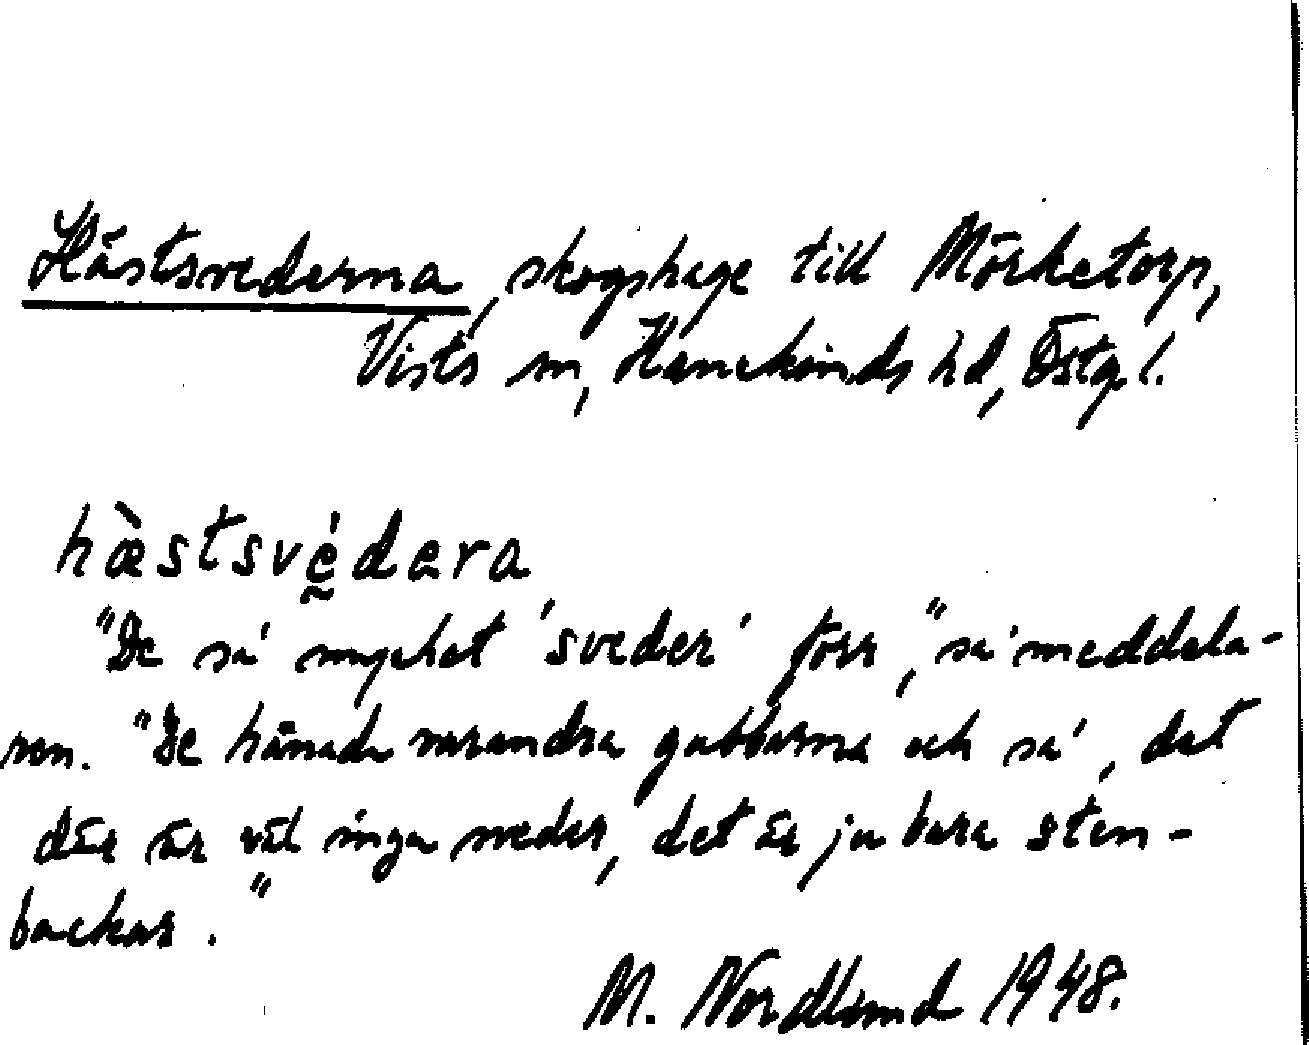 Hästsvederna, skogshage till Mörketorp,
Vists sn, Hanekinds hd, Östg l.
hæ̀stsvḛ́dera
"De sa' mycket 'sveder' förr," sa' meddela-
ren. "De hånade varandra gubbarna och sa', det
där är väl inga sveder, det är ju bara sten-
backar."
M. Nordlund 1948.